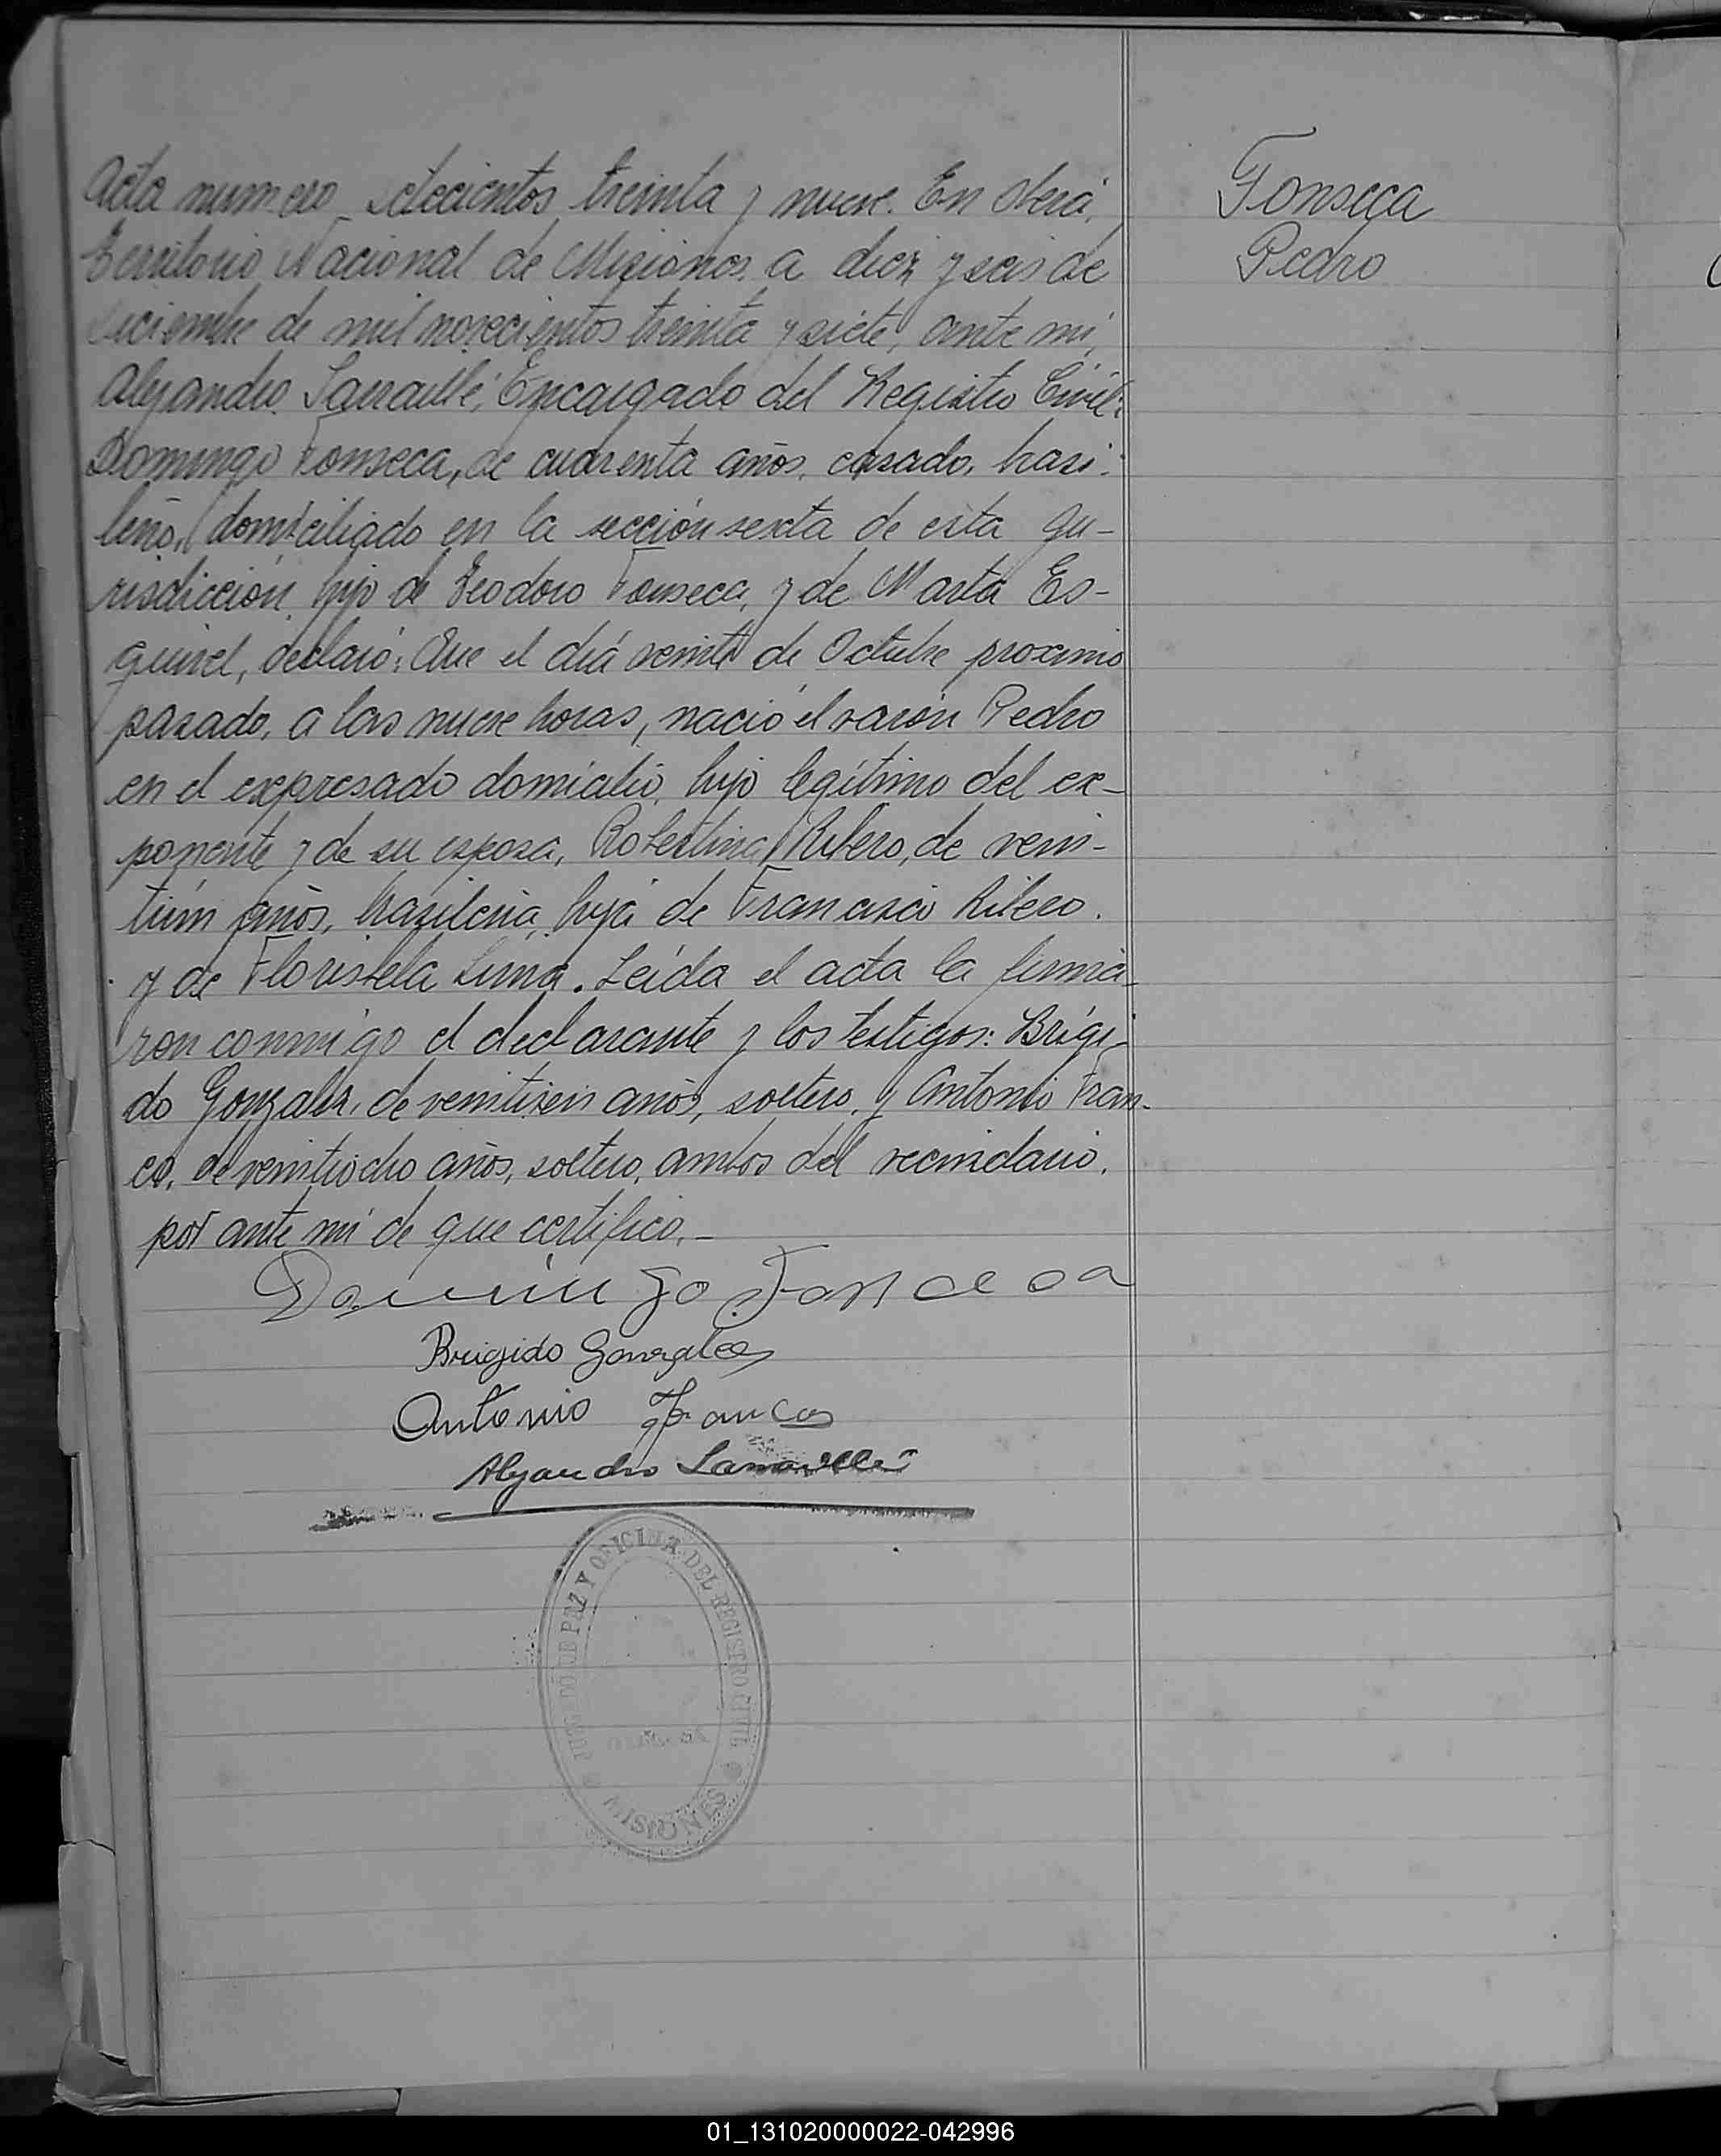 Acta numero setecientos treinta y nueve. En Oberá,
Territorio Nacional de Misiones, a diez y seis de
diciembre de mil novecientos treinta y siete, ante mi,
Alejandro Encargado del Registro Civil:
Domingo Fonseca, de cuarenta años, casado, brasi-
leño, domiciliado en la sección sexta de esta Ju-
risdicción, hijo de Teodoro Fonseca, y de Marta Es-
quivel, declaró: Que el día veinte de Octubre proximo
pasado, a las nueve horas, nació el varón Pedro
en el expresado domicilio, hijo legítimo del ex-
ponente y de su esposa, Robertina Ribero, de vein-
tiún años, brasileña, hija de Francisco Ribero.
y de Floristela Lima. Leída el acta la firma-
ron conmigo el declarante y los testigos: Brígi-
do Gonzalez, de veintiseis años, soltero, y Antonio Fran-
co, de veintiocho años, soltero, ambos del vecindario,
por ante mí de que certifico.-
Domingo Fonceca
Brigido Gonzalez
Antonio Franco
Alejandro
JUZGADO DE PAZ Y OFICINA DEL REGISTRO CIVIL
MISIONES
Fonseca
Pedro
01_131020000022-042996